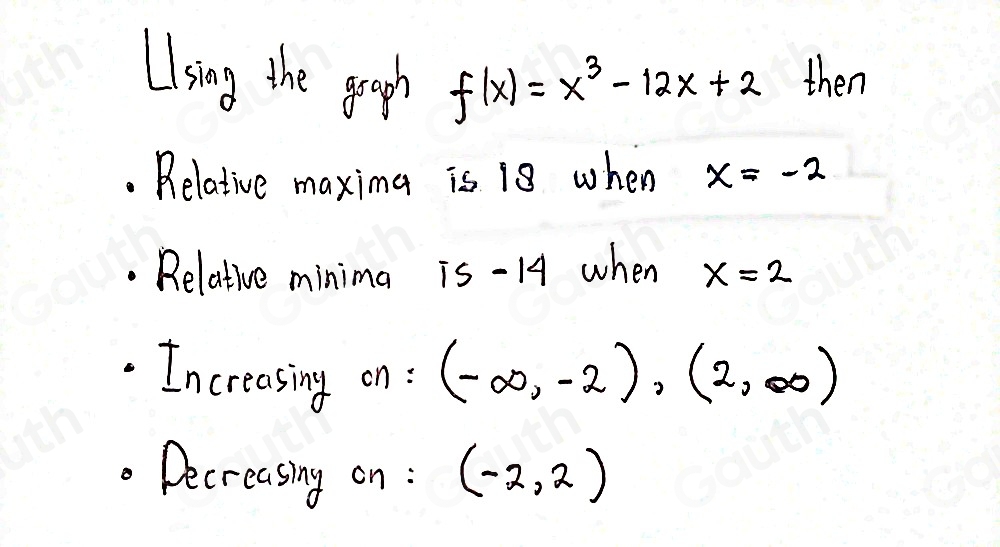 Using the graph f(x) = x³ - 12x + 2 then
• Relative maxima is 18 when x = -2
• Relative minima is -14 when x = 2
• Increasing on : (-∞, -2), (2, ∞)
• Decreasing on : (-2, 2)